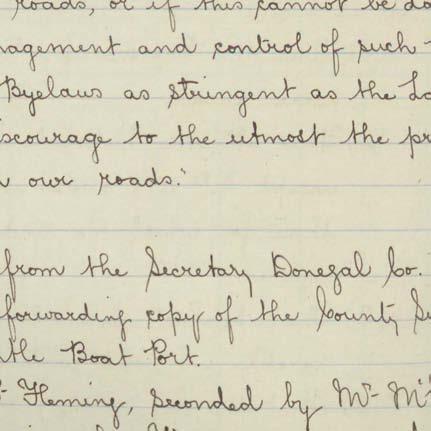 roads, or if this cannot be do
nagement and control of such
Byelaws as stringent as the Lo
scourage to the utmost the pr
our roads."
from the Secretary Donegal Co.
forwarding copy of the County Su
the Boat Port.
Fleming, seconded by Mr. Mc